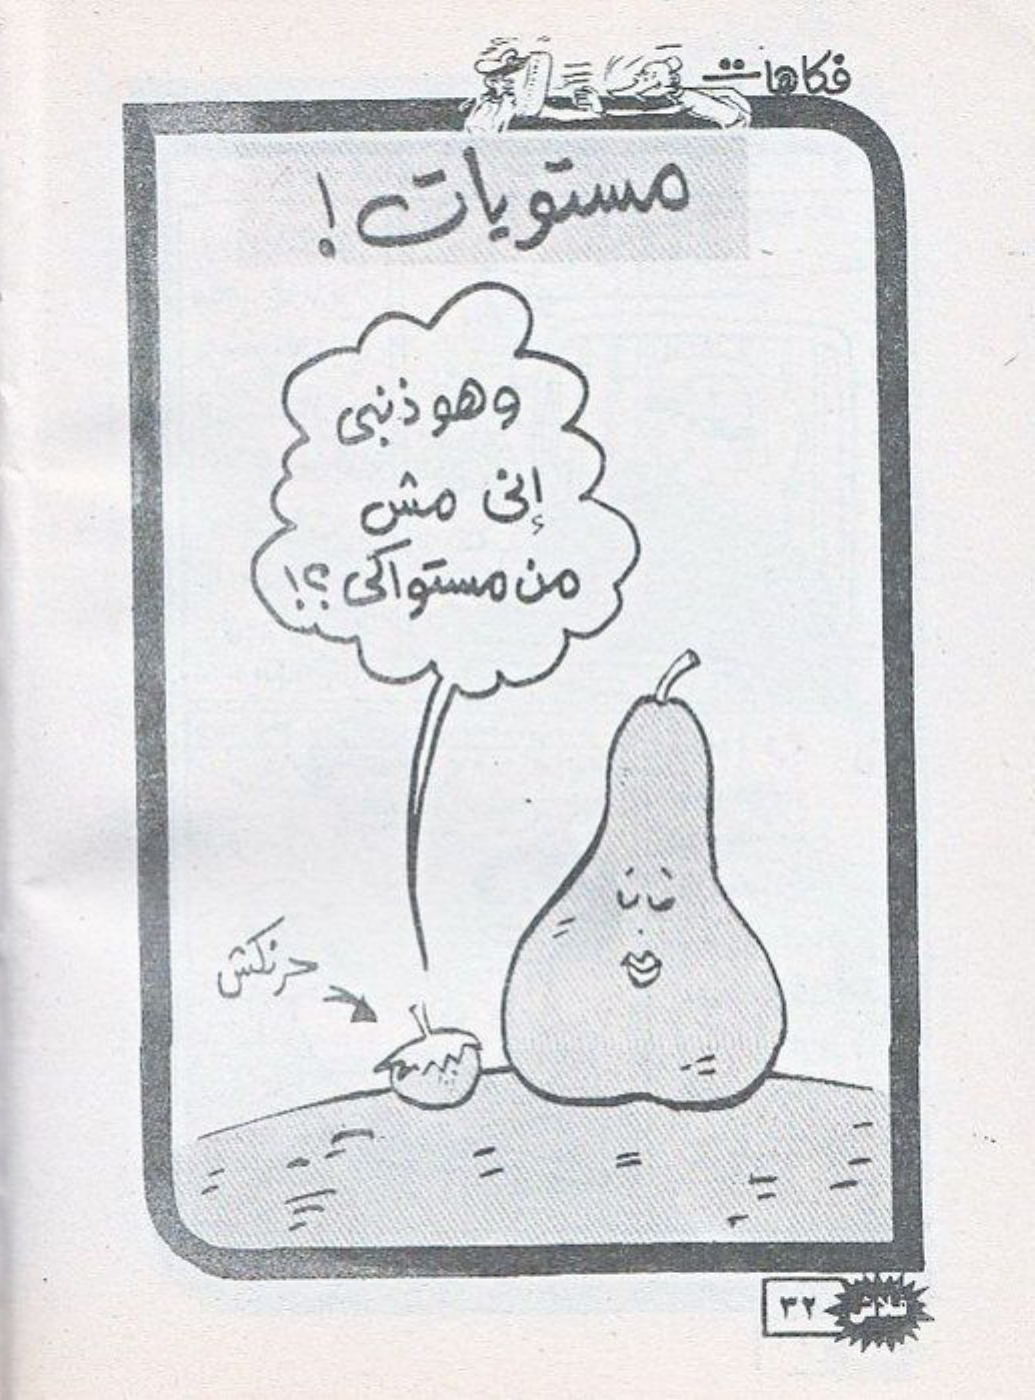 فكاهات
مستويات !
وهو ذنبى
إنى مش
من مستواكى ؟!
حرنكش
فلاش
٣٢